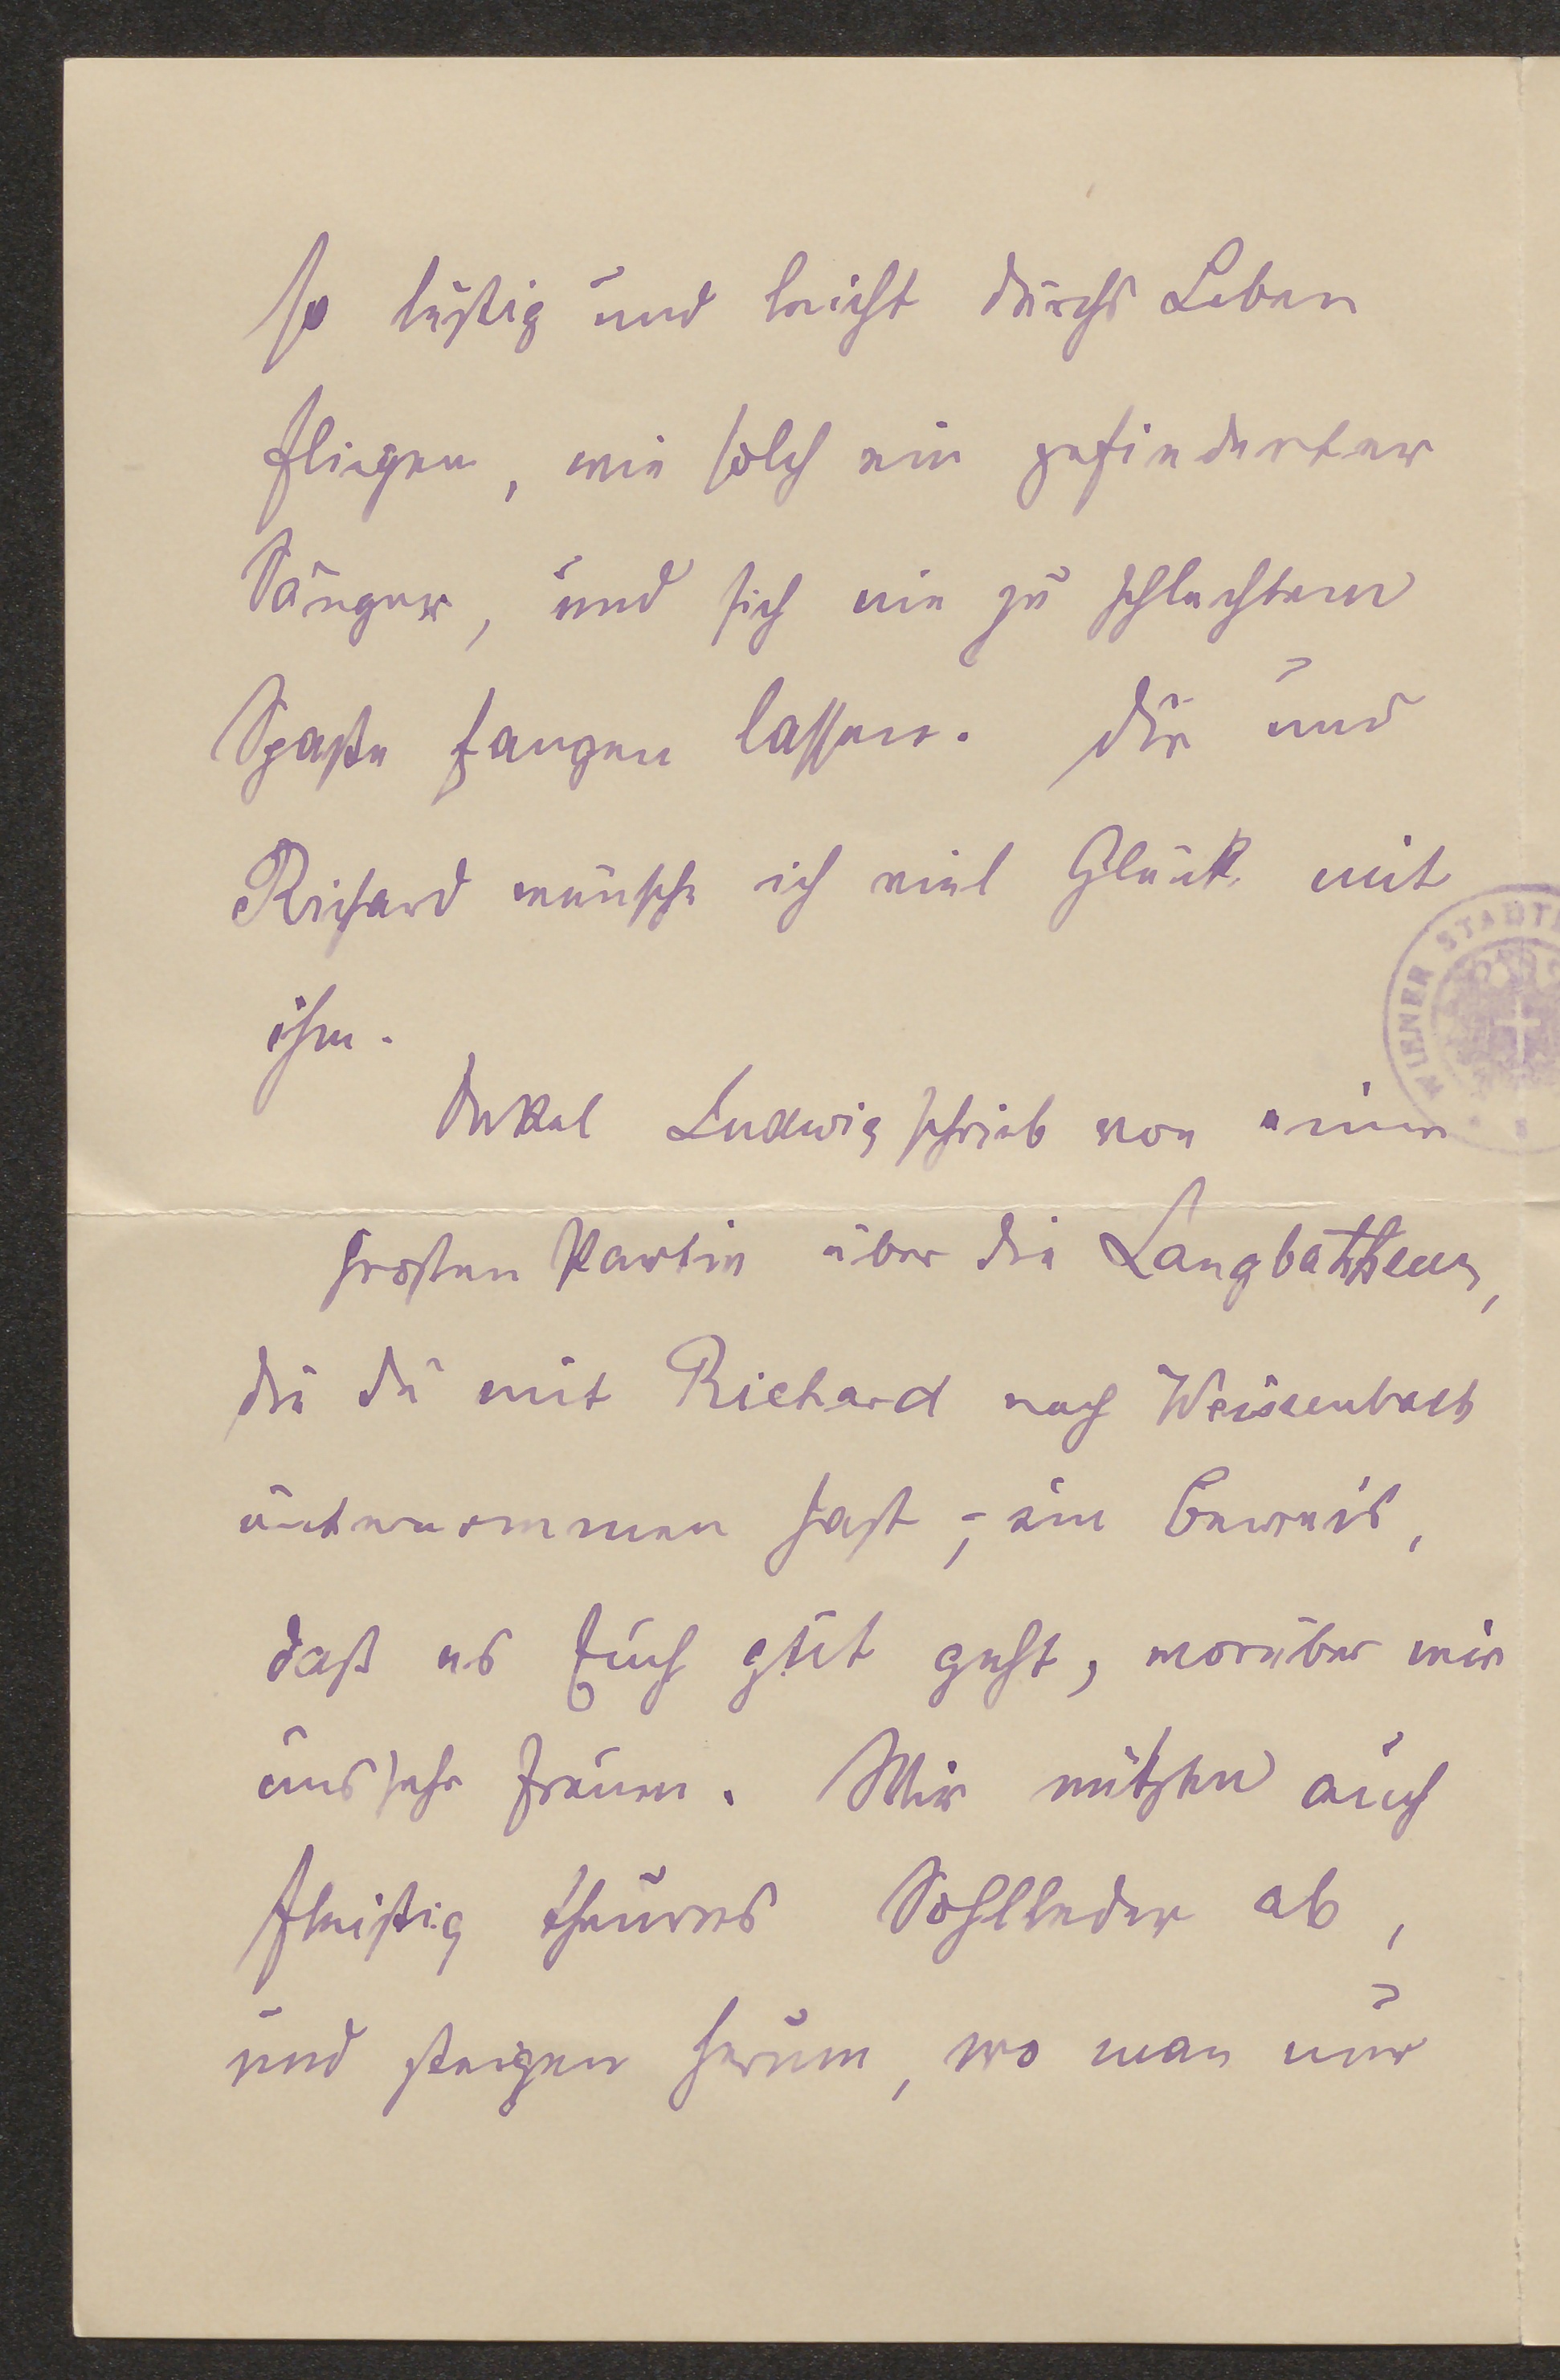 so lustig und leicht durchs Leben
fliegen, wie solch ein gefiederter
Sänger, und sich nie zu schlechtem
Spaße fangen lassen. Dir und
Richard wünsche ich viel Glück mit
ihm.
WIENER STADT
Onkel Ludwig schrieb von einer
großen Partie über die Langbathseen,
die du mit Richard nach Weissenbach
unternommen hast, – ein Beweis,
daß es Euch gut geht, worüber wir
uns sehr freuen. Wir nützen auch
fleißig theures Sohlleder ab,
und steigen herum, wo man nur